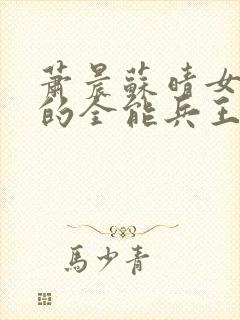 蕭晨蘇晴女
的全能兵王
馬少青